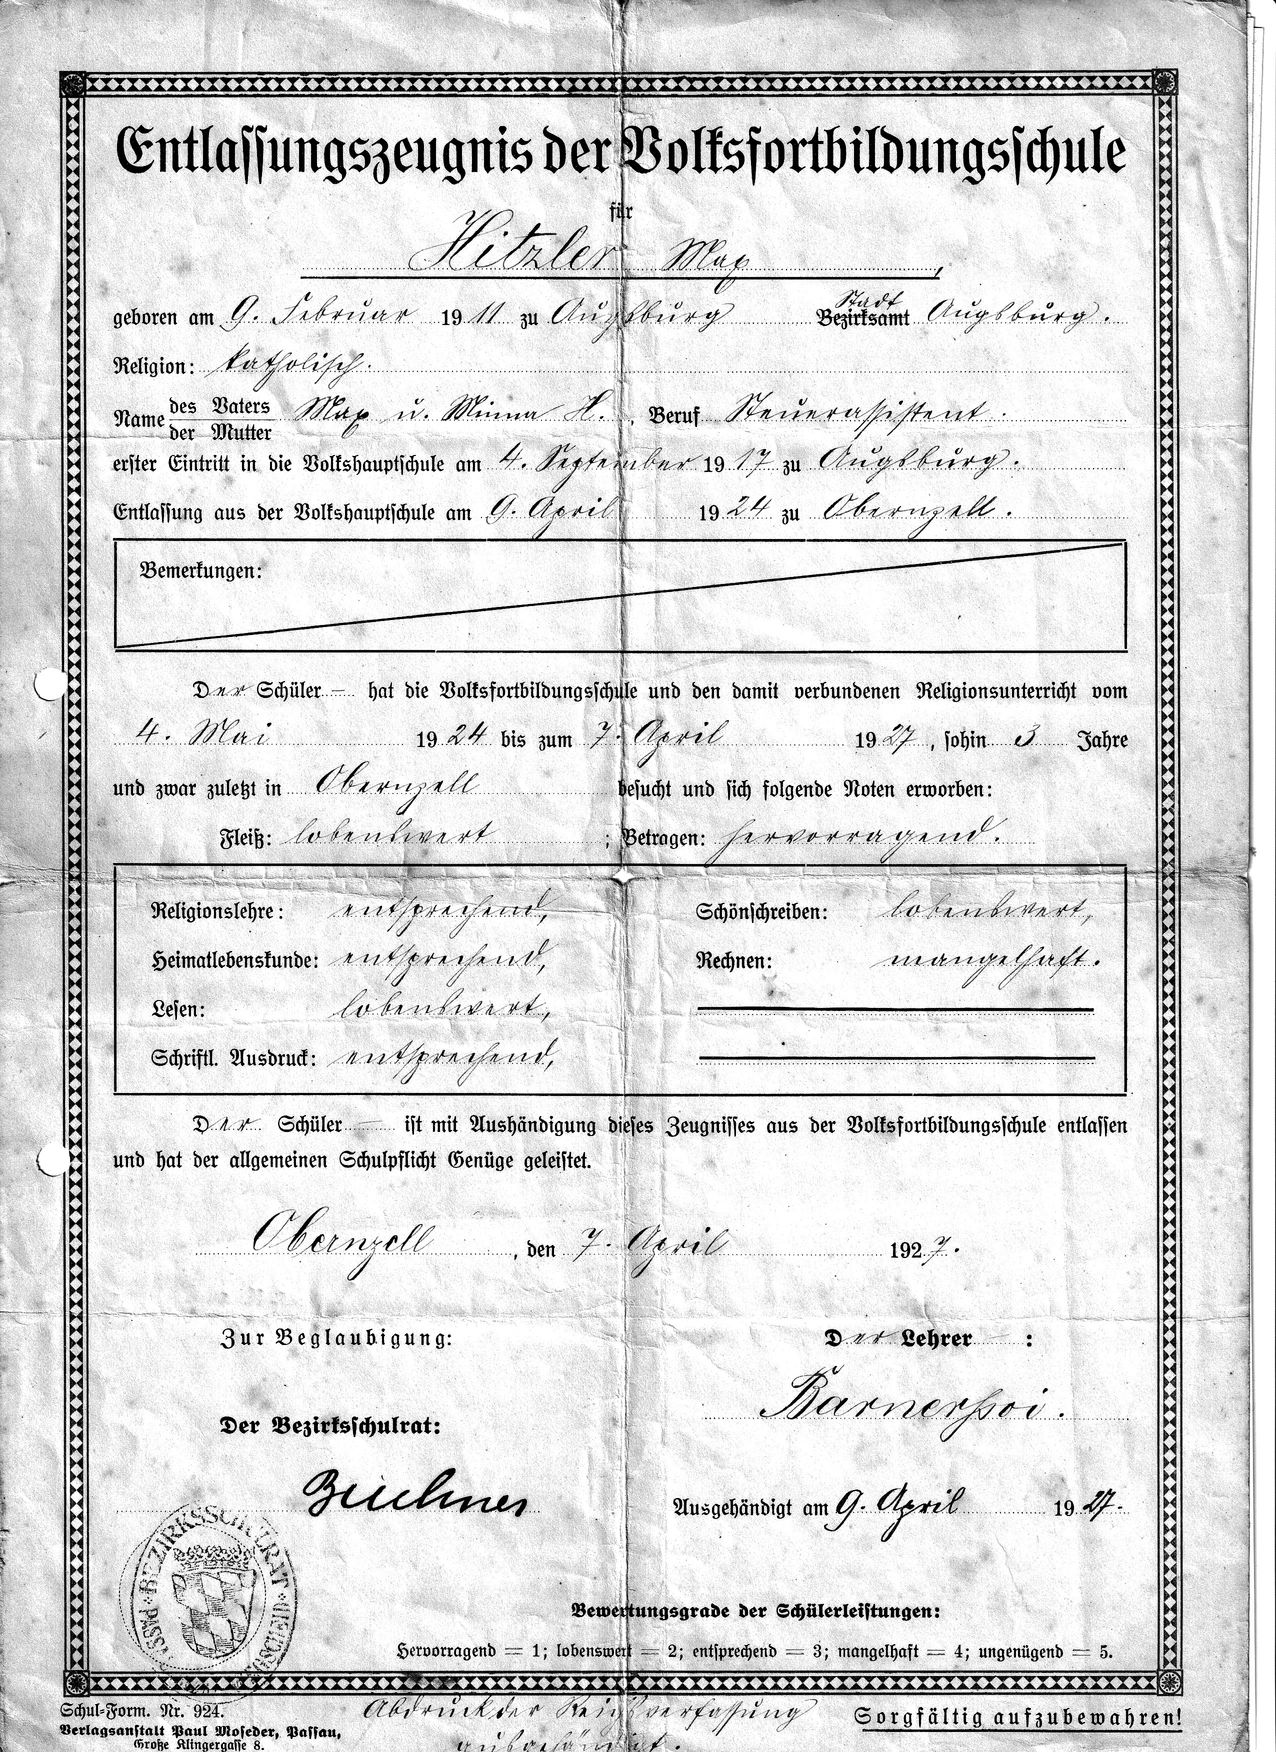 Entlassungszeugnis der Volksfortbildungsschule
für
Hitzler Max,
geboren am 9. Februar 1911 zu Augsburg Stadt Bezirksamt Augsburg.
Religion: katholisch.
Name des Vaters Max u. Minna H., Beruf Steuerassistent.
der Mutter
erster Eintritt in die Volkshauptschule am 4. September 1917 zu Augsburg.
Entlassung aus der Volkshauptschule am 9. April 1924 zu Obernzell.
Bemerkungen:
Der Schüler – hat die Volksfortbildungsschule und den damit verbundenen Religionsunterricht vom
4. Mai 1924 bis zum 7. April 1927, sohin 3 Jahre
und zwar zuletzt in Obernzell besucht und sich folgende Noten erworben:
Fleiß: lobenswert; Betragen: hervorragend.
Religionslehre: entsprechend, Schönschreiben: lobenswert,
Heimatlebenskunde: entsprechend, Rechnen: mangelhaft.
Lesen: lobenswert,
Schriftl. Ausdruck: entsprechend,
Der Schüler – ist mit Aushändigung dieses Zeugnisses aus der Volksfortbildungsschule entlassen
und hat der allgemeinen Schulpflicht Genüge geleistet.
Obernzell, den 7. April 1927.
Zur Beglaubigung: Der Lehrer – :
Der Bezirksschulrat:
Ausgehändigt am 9. April 1927.
BEZIRKSSCHULRAT
Bewertungsgrade der Schülerleistungen:
Hervorragend = 1; lobenswert = 2; entsprechend = 3; mangelhaft = 4; ungenügend = 5.
Schul-Form. Nr. 924.
Verlagsanstalt Paul Moseder, Passau,
Große Klingergasse 8.
Abdruck der Reichsverfassung
ausgehändigt.
Sorgfältig aufzubewahren!